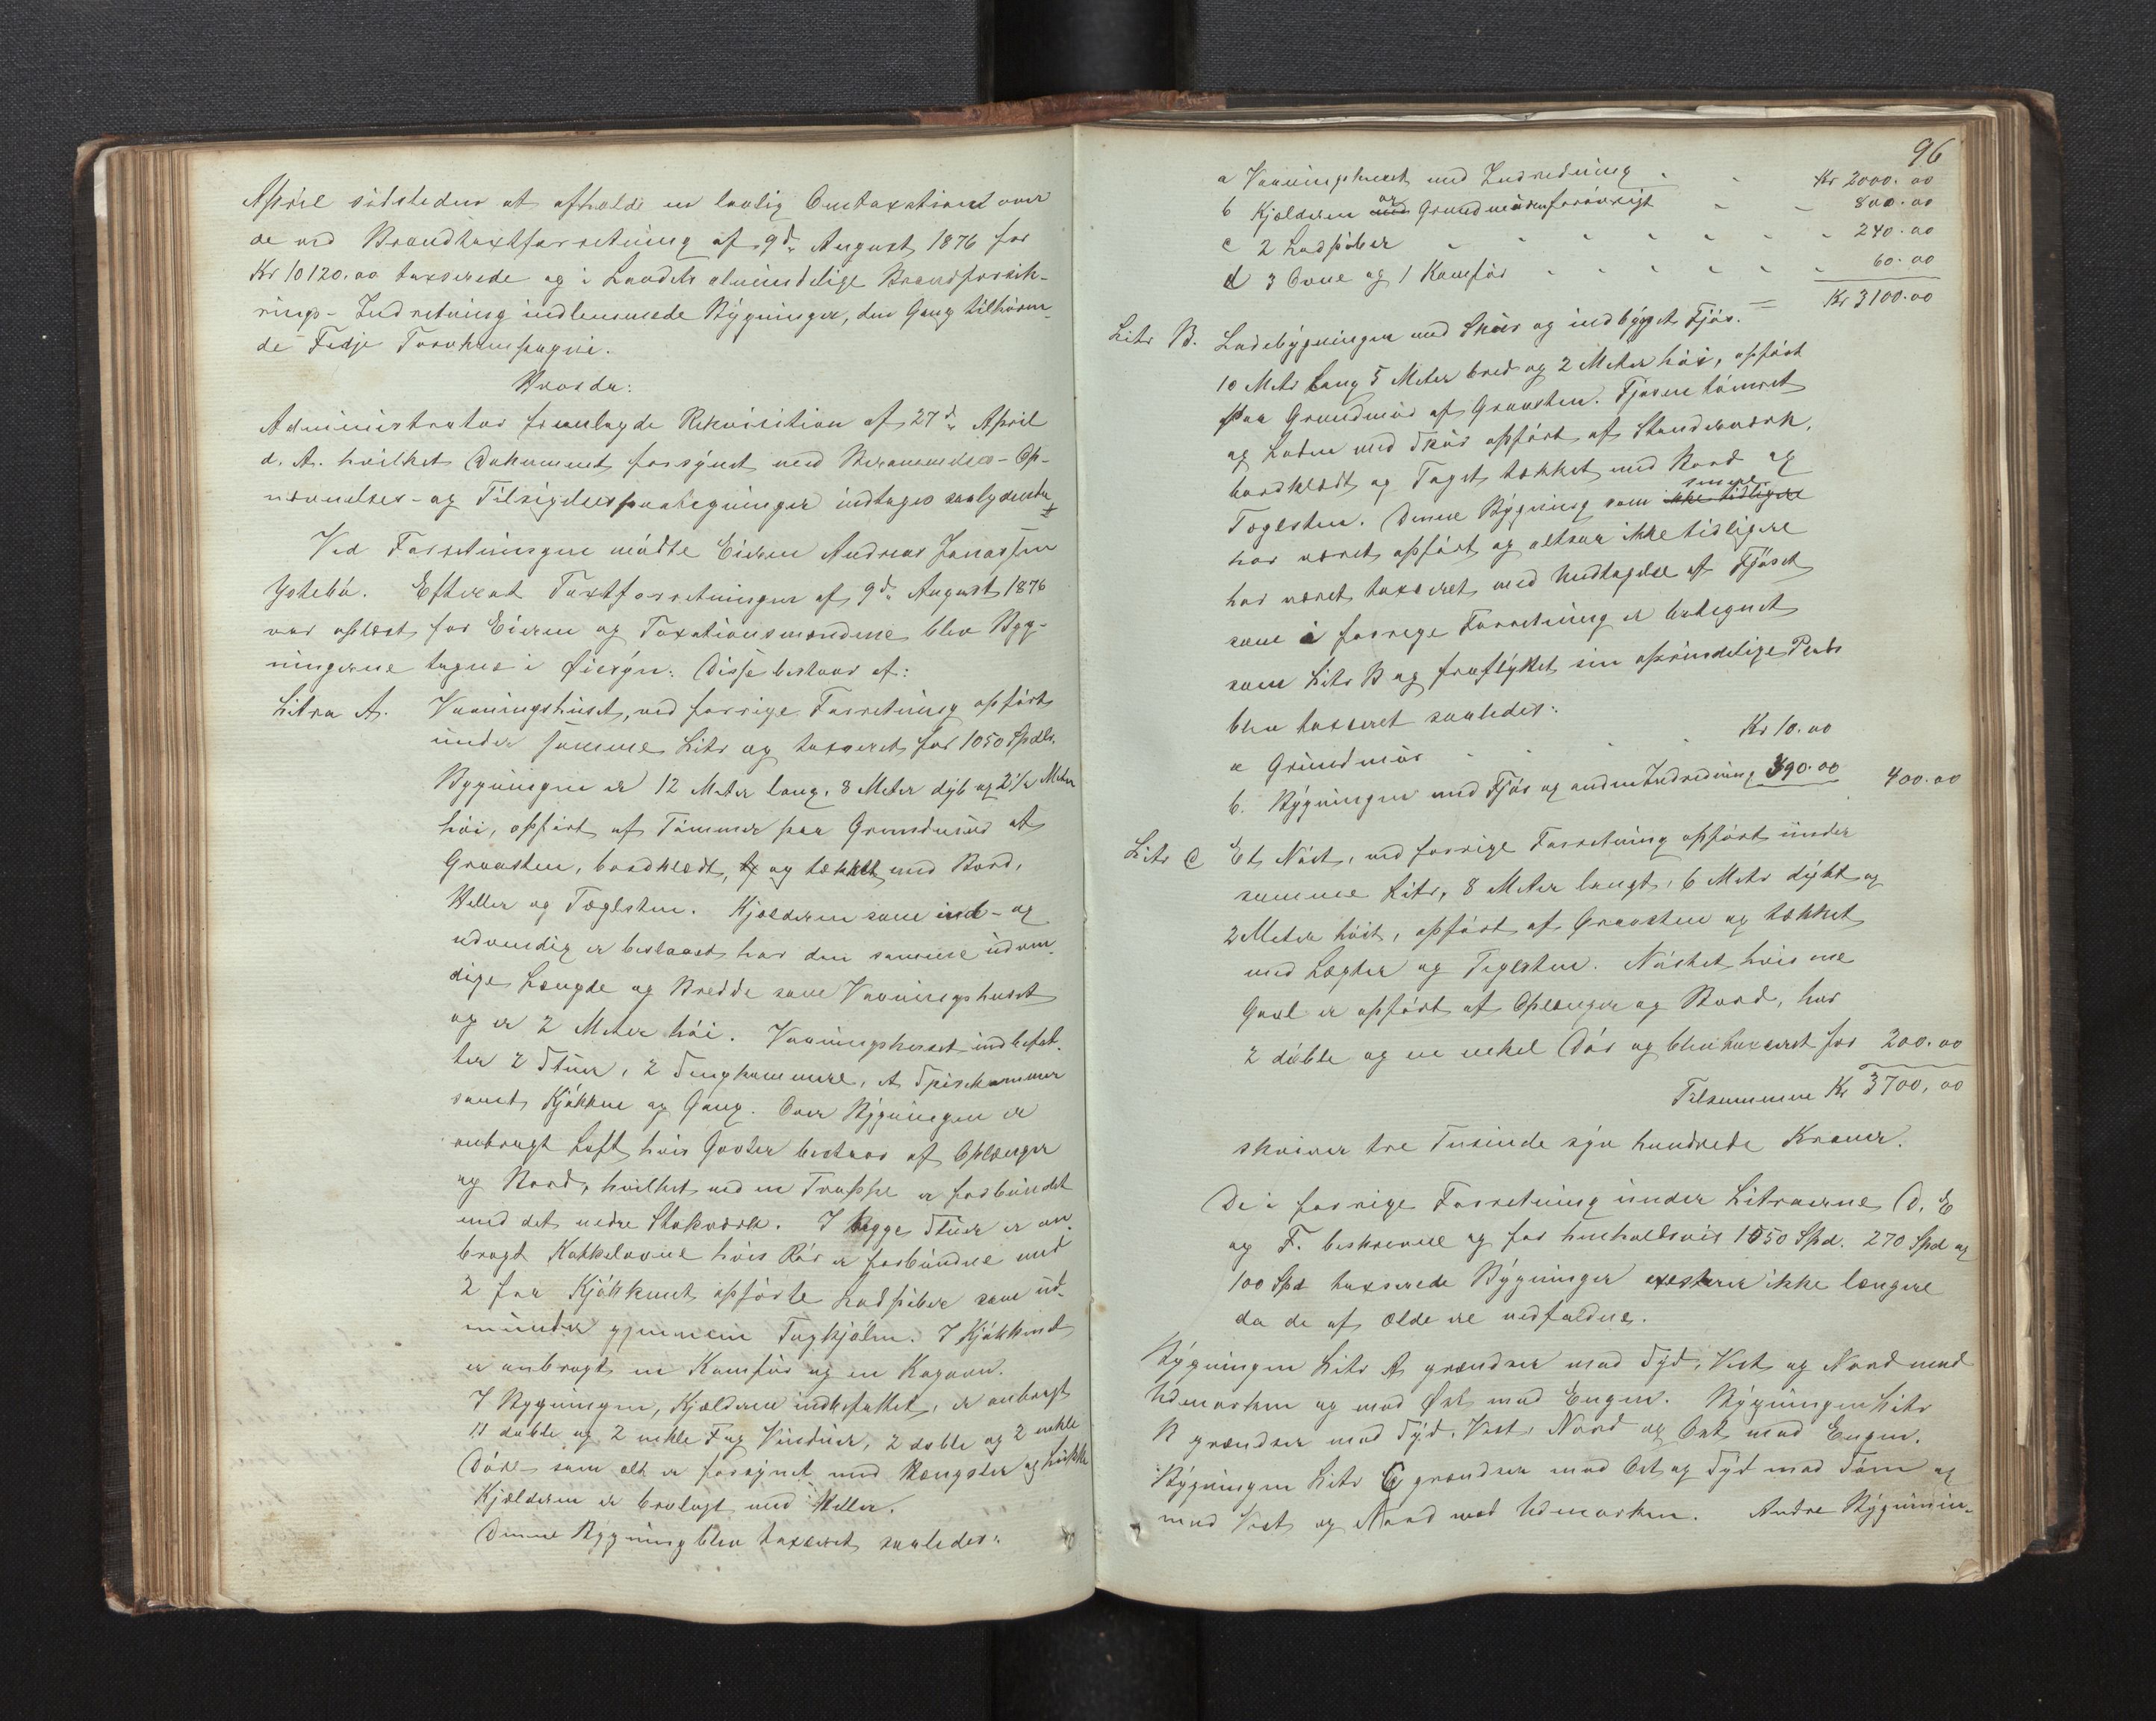 April sidstleden at afholde en lovlig Omtaxationt over
de ved Brandtaxtforretning af 9d. August 1876 for
Kr 10120.00 taxserede og i Landets almindelige Brandforsik-
rings-Indretning indlemmede Bygninger, den Gang tilhören-
de Fedje Torvkompagni.
Hvorda:
Administrator fremlagde Rekvisition af 27d. April
d. A. hvilket Dokument forsÿnet med Berammelses- Op-
nævnelses- og Tilsigelsespaategninger indtages saalydende
Ved Forretningen mödte Eieren Andreas Jonassen
Ystebö. Efterat Taxtforretningen af 9d. August 1876
var oplæst for Eieren og Taxationsmændene blev Byg-
ningerne tagne i Øiesÿn. Disse bestaar af:
Litra A. Vaaningshuset, ved forrige Forretning opfört
under samme Litr og taxseret for 1050 Spdlr.
Bygningen er 12 Meter lang, 8 Meter dÿb og 2 1/2 Meter
höi, opfört af Tömmer paa Grundmur af
Graasten, bordklædt, og tækket med Bord,
Heller og Tæglsten. Kjælderen som ind- og
udvendig er beslaaet har den samme udven-
dige Længde og Bredde som Vaaningshuset
og er 2 Meter höi. Vaaningshuset indbefat-
ter 2 Stuer, 2 Sengkammere, et Spiskammer
samt Kjökken og Gang. Over Bÿgningen er
anbragt Loft hvis Gavler bestaar af Oplænger
og Bord, hvilket ved en Trappe er forbundet
med det nedre Stokværk. I begge Stuer er an-
bragt Kakkelovne hvis Rör er forbundne med
2 fra Kjökkenet opförte Ladpiber som ud-
munder gjennem Tagkjölen. I Kjökkenet
er anbragt en Komfur og en Kogovn.
I Bygningen, Kjælderen indbefattet, er anbragt
11 doble og 2 enkle Fag Vinduer, 2 doble og 2 enkle
Döre som alt er forsÿnet med Hængsler og Lukke
Kjælderen er brolagt med Heller.
Denne Bygning blev taxseret saaledes:
96
a Vaaningshuset med Indredning Kr 2000.00
b Kjælderen med og Grundmuren forövrigt 800.00
c 2 Ladpiber 240.00
d 3 Ovne og 1 Komfür 60.00
= Kr 3100.00
Litr B. Ladebÿgningen med Skur og indbÿgget Fjös.
10 Meter lang 5 Meter bred og 2 Meter höi, opfört
paa Grundmür af Graasten. Fjösen tömret
og Laden med Skur opfört af Stenderværk,
bordklædt og Taget tækket med Bord og
Tæglsten. Denne Bÿgning som senere ikke tidligere
har været opfört og altsaa ikke tidligere
har været taxseret med Undtagelse af Fjöset
som i forrige Forretning er betegnet
som Litr B og fraflÿttet sin oprindelige Plads
blev taxseret saaledes:
a Grundmür Kr 10.00
b. Bÿgningen med Fjös og anden Indredning 390.00 400.00
Litr C Et Nöst, ved forrige Forretning opfört under
samme Litr, 8 Meter langt, 6 Meter dÿbt og
2 Meter höit, opfört af Graasten og tækket
med Lægter og Teglsten. Nöstet hvis ene
Gavl er opfört af Oplænger og Bord, har
2 doble og en enkel Dör og blev taxseret for 200.00
Tilsammen Kr 3700,00
skriver tre Tusinde sÿv hundrede Kroner.
De i forrige Forretning under Litraerne D, E
og F. beskrevne og for henholdsvis 1050 Spd. 270 Spd og
100 Spd taxserede Bÿgninger exesterer ikke længere
da de af Ælde ere nedfaldne.
Bÿgningen Litr A grændser mod Sÿd, Vest og Nord mod
Udmarken og mod Øst mod Engen. Bÿgningen Litr
B grændser mod Sÿd, Vest, Nord og Ost mod Engen.
Bÿgningen Litr C grændser mod Ost og Sÿd mod Söen og
mod Vest og Nord mod Udmarken. Andre Bÿgnin-